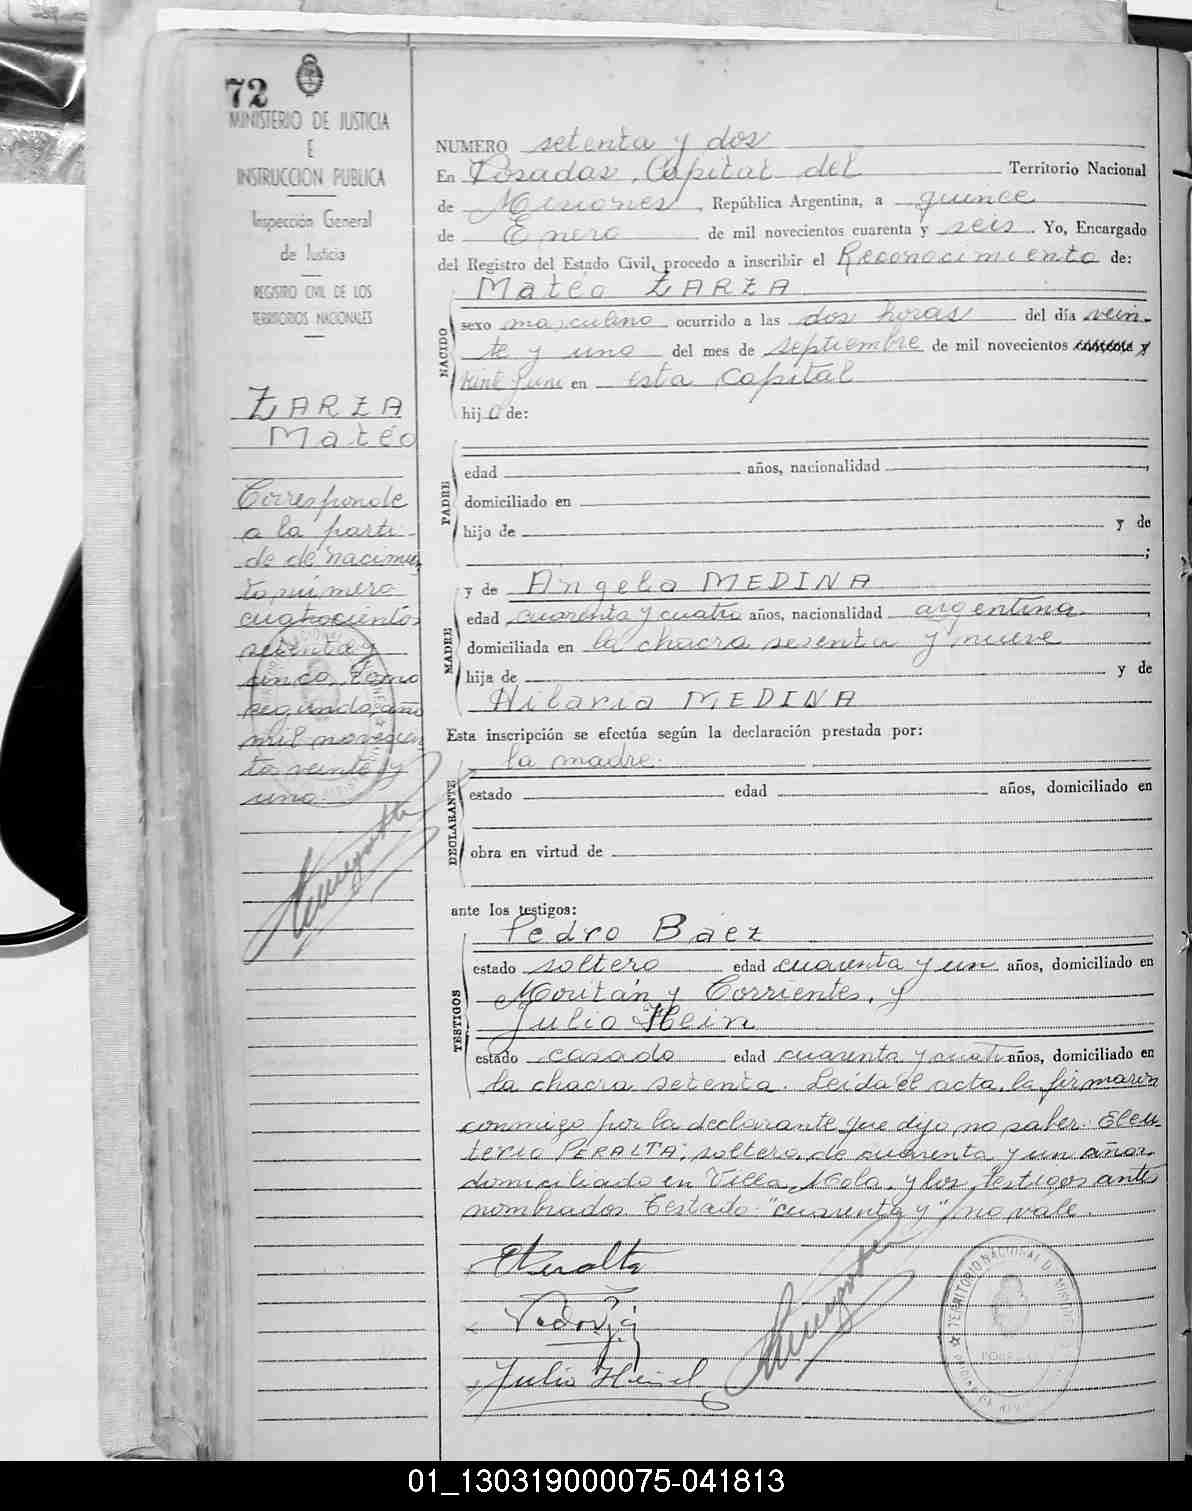 72
MINISTERIO DE JUSTICIA
E
INSTRUCCION PUBLICA
Inspección General
de Justicia
REGISTRO CIVIL DE LOS
TERRITORIOS NACIONALES
ZARZA
Mateo
Corresponde
a la parti-
da de nacimien
to número
cuatrocientos
sesenta y
cinco, Tomo
segundo, año
mil novecien
tos veinte y
uno.
NUMERO setenta y dos
En Posadas, Capital del Territorio Nacional
de Misiones, República Argentina, a quince
de Enero de mil novecientos cuarenta y seis. Yo, Encargado
del Registro del Estado Civil, procedo a inscribir el Reconocimiento de:
Mateo ZARZA
NACIDO
sexo masculino ocurrido a las dos horas del día vein-
te y uno del mes de septiembre de mil novecientos cuarenta y
veinte y uno en esta Capital
hijo de:
PADRE
edad años, nacionalidad
domiciliado en
hijo de y de
;
MADRE
y de Angela MEDINA
edad cuarenta y cuatro años, nacionalidad argentina
domiciliada en la chacra sesenta y nueve
hija de y de
Hilaria MEDINA
Esta inscripción se efectúa según la declaración prestada por:
la madre.
DECLARANTE
estado edad años, domiciliado en
obra en virtud de
ante los testigos:
TESTIGOS
Pedro Báez
estado soltero edad cuarenta y un años, domiciliado en
Moritán y Corrientes, y
Julio Hein
estado casado edad cuarenta y cuatro años, domiciliado en
la chacra setenta. Leída el acta, la firmaron
conmigo por la declarante que dijo no saber. Eleu
terio PERALTA, soltero, de cuarenta y un años
domiciliado en Villa Mola, y los testigos antes
nombrados. Testado: "cuarenta y" no vale.
EPeralta
Julio
TERRITORIO NACIONAL D. MISIONES
01_130319000075-041813